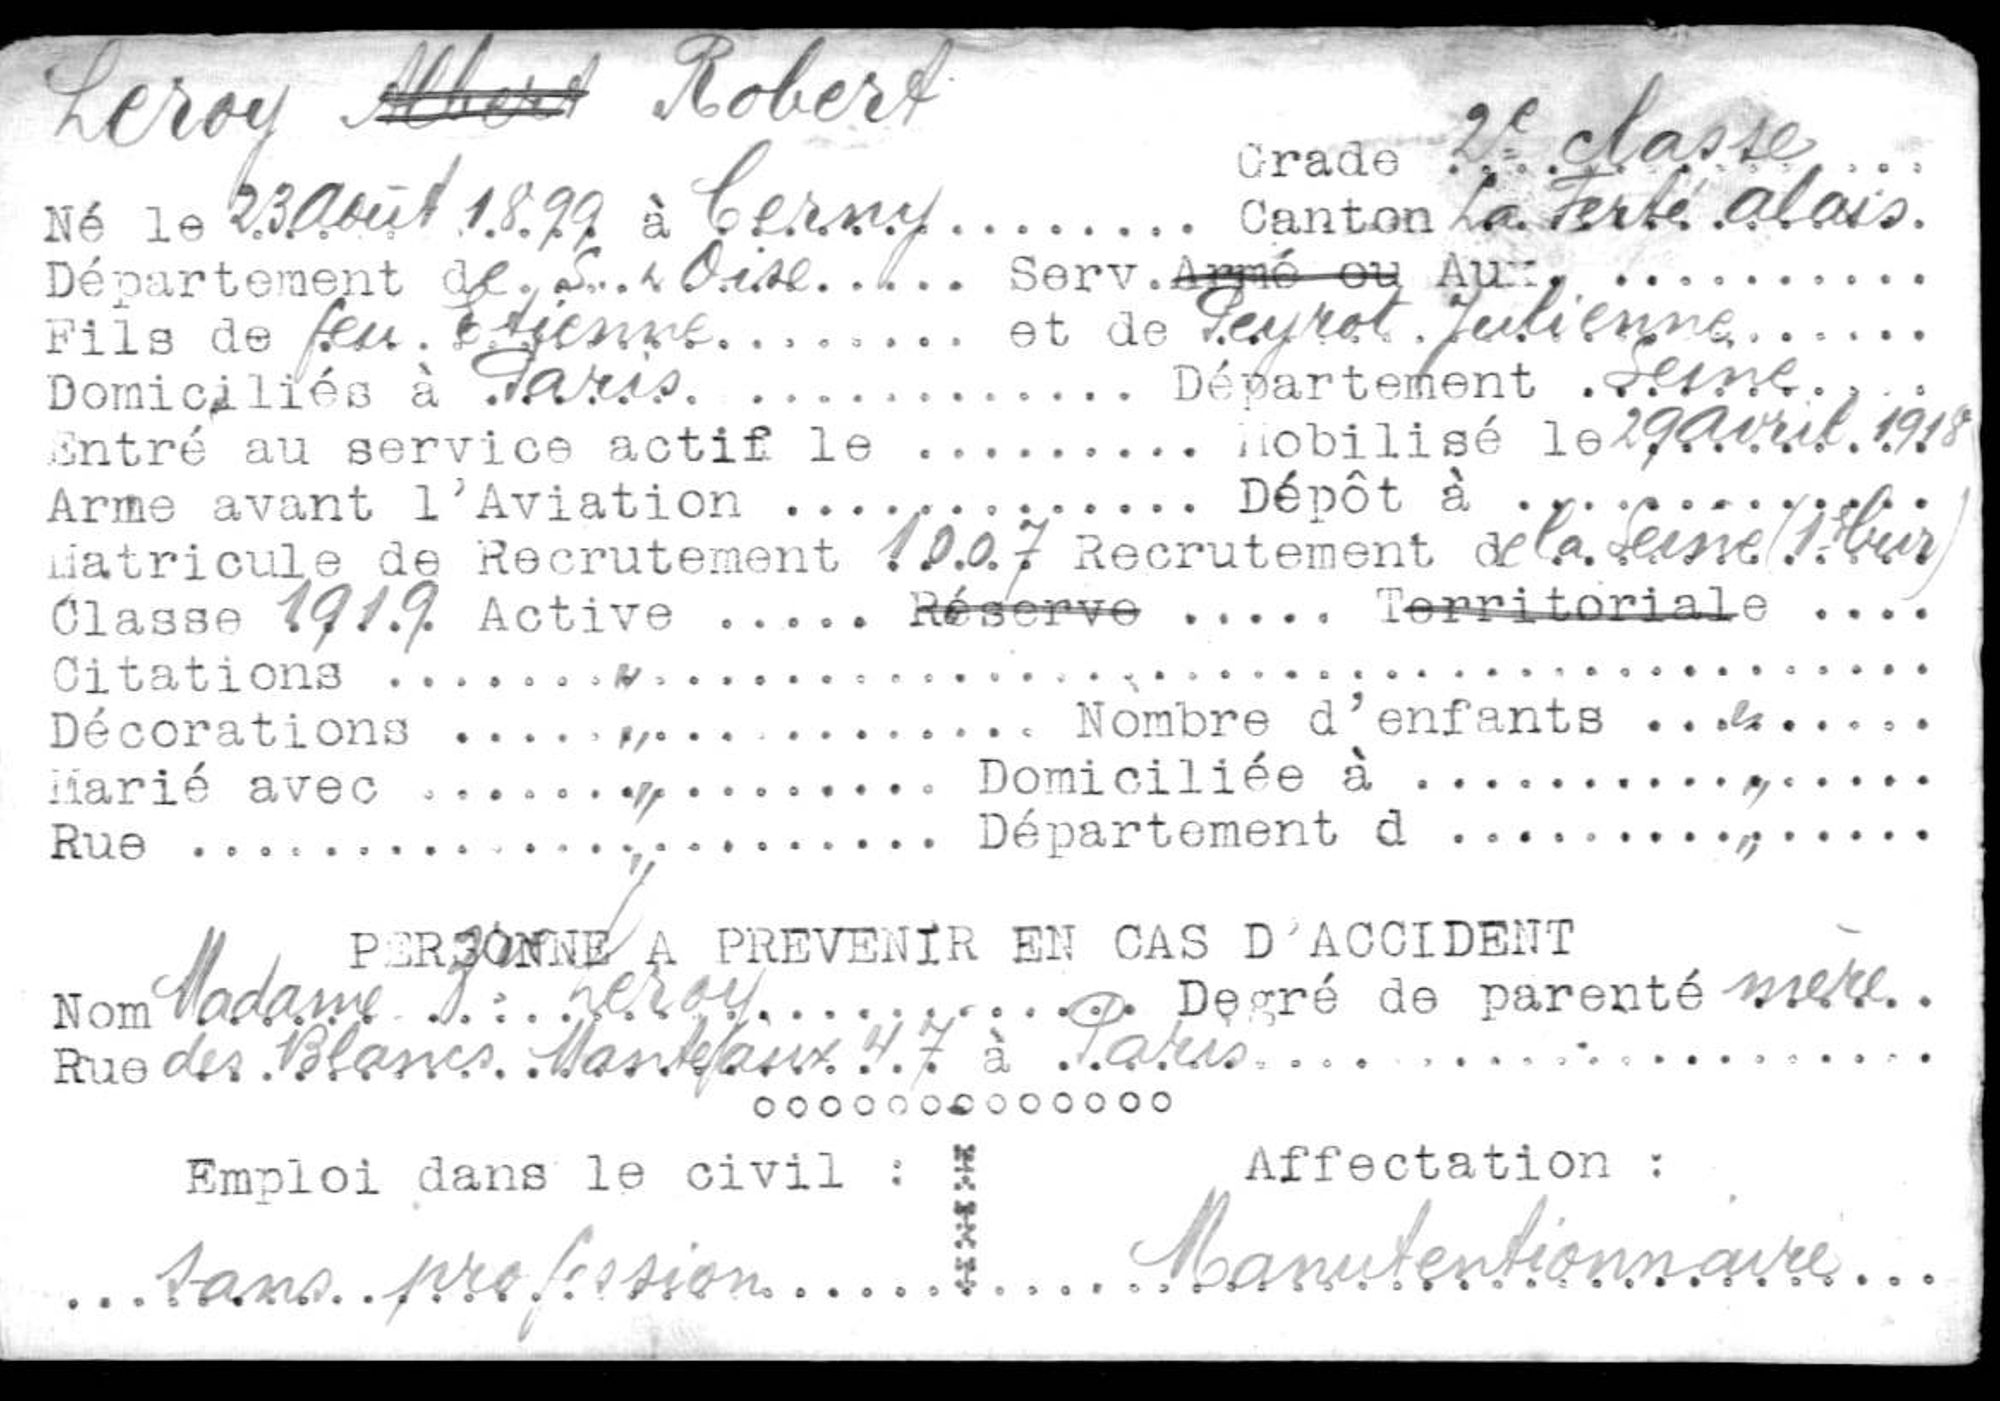 Leroy Albert Robert
Grade 2e classe
Né le 23 Août 1899 à Cerny Canton La Ferté Alais.
Département de S. & Oise Serv. Armé ou Aux.
Fils de feu Etienne et de Peyrot Julienne
Domiciliés à Paris Département Seine
Entré au service actif le Mobilisé le 29 Avril 1918
Arme avant l'Aviation Dépôt à
Matricule de Recrutement 1007 Recrutement de la Seine (1er bur)
Classe 1919 Active Réserve Territoriale
Citations "
Décorations " Nombre d'enfants "
Marié avec " Domiciliée à "
Rue " Département d "
PERSONNE A PREVENIR EN CAS D'ACCIDENT
Nom Madame Leroy Degré de parenté mère
Rue des Blancs Manteaux 47 à Paris
ooooooooooooo
Emploi dans le civil : Affectation :
sans profession Manutentionnaire